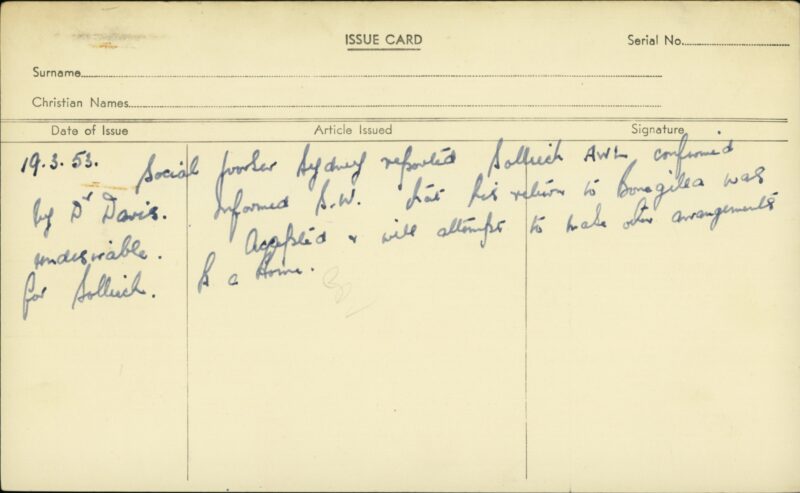 ISSUE CARD
Serial No.
Surname
Christian Names
Date of Issue Article Issued Signature
19.3.53. Social Worker Sydney reported Sollich AWL confirmed
by Dr Davis. Informed S.W. that his return to Bonegilla was
undesirable. Accepted & will attempt to make other arrangements
for Sollich. a Home.